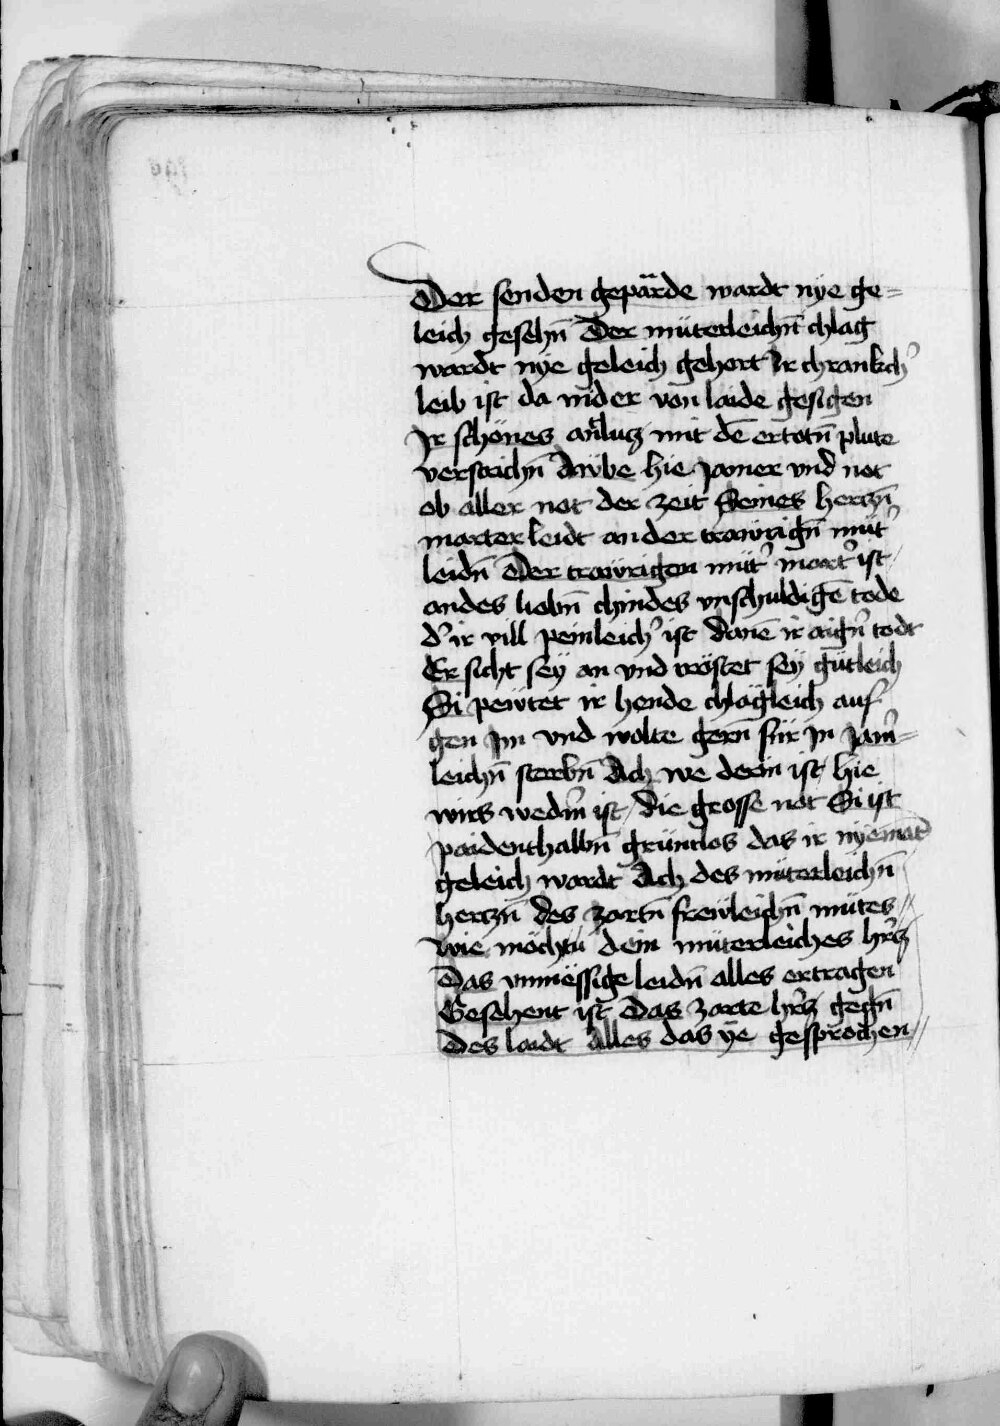 Der senden gepärde wardt nye ge=
leich gesehn̄ Der müterleichn̄ chlag
wardt nye geleich gehort Ir chrankch᾽
leib ist da nider von laide gesigen
Ir schönes antlucz mit dē ertotn̄ plute
verstrichn̄ Awbe hie jamer vnd not
ob aller not der zeit Seines herczn̄
marter leidt an der trawrign̄ müt᾽
leidn̄ Der trawrigen müt᾽ mart᾽ ist
an des liebn̄ chindes vnschuldigē tode
d᾽ ir vill peinleich᾽ ist dan̄e ir aign᾽ todt
Er sicht sey an vnd tröstet sey gütleich
Si pewtet ir hende chlägleich auf
gen Im vnd wolte gern̄ für In jam᾽=
leichn̄ sterbn̄ Ach we derin ist hie
wirs wedm̄ ist die grosse not Si ist
paidenthalbn̄ grüntlos das ir nyemāt
geleich wardt Ach des müterleichn̄
herczn̄ des zartn̄ frewleichn̄ mütes
wie möchtu dein müterleiches hr̄cz
Das vnmëssige leidn̄ alles ertragen
Geschent ist Das zarte hr̄cz gegn̄
Des laidt alles das ye gesprochen